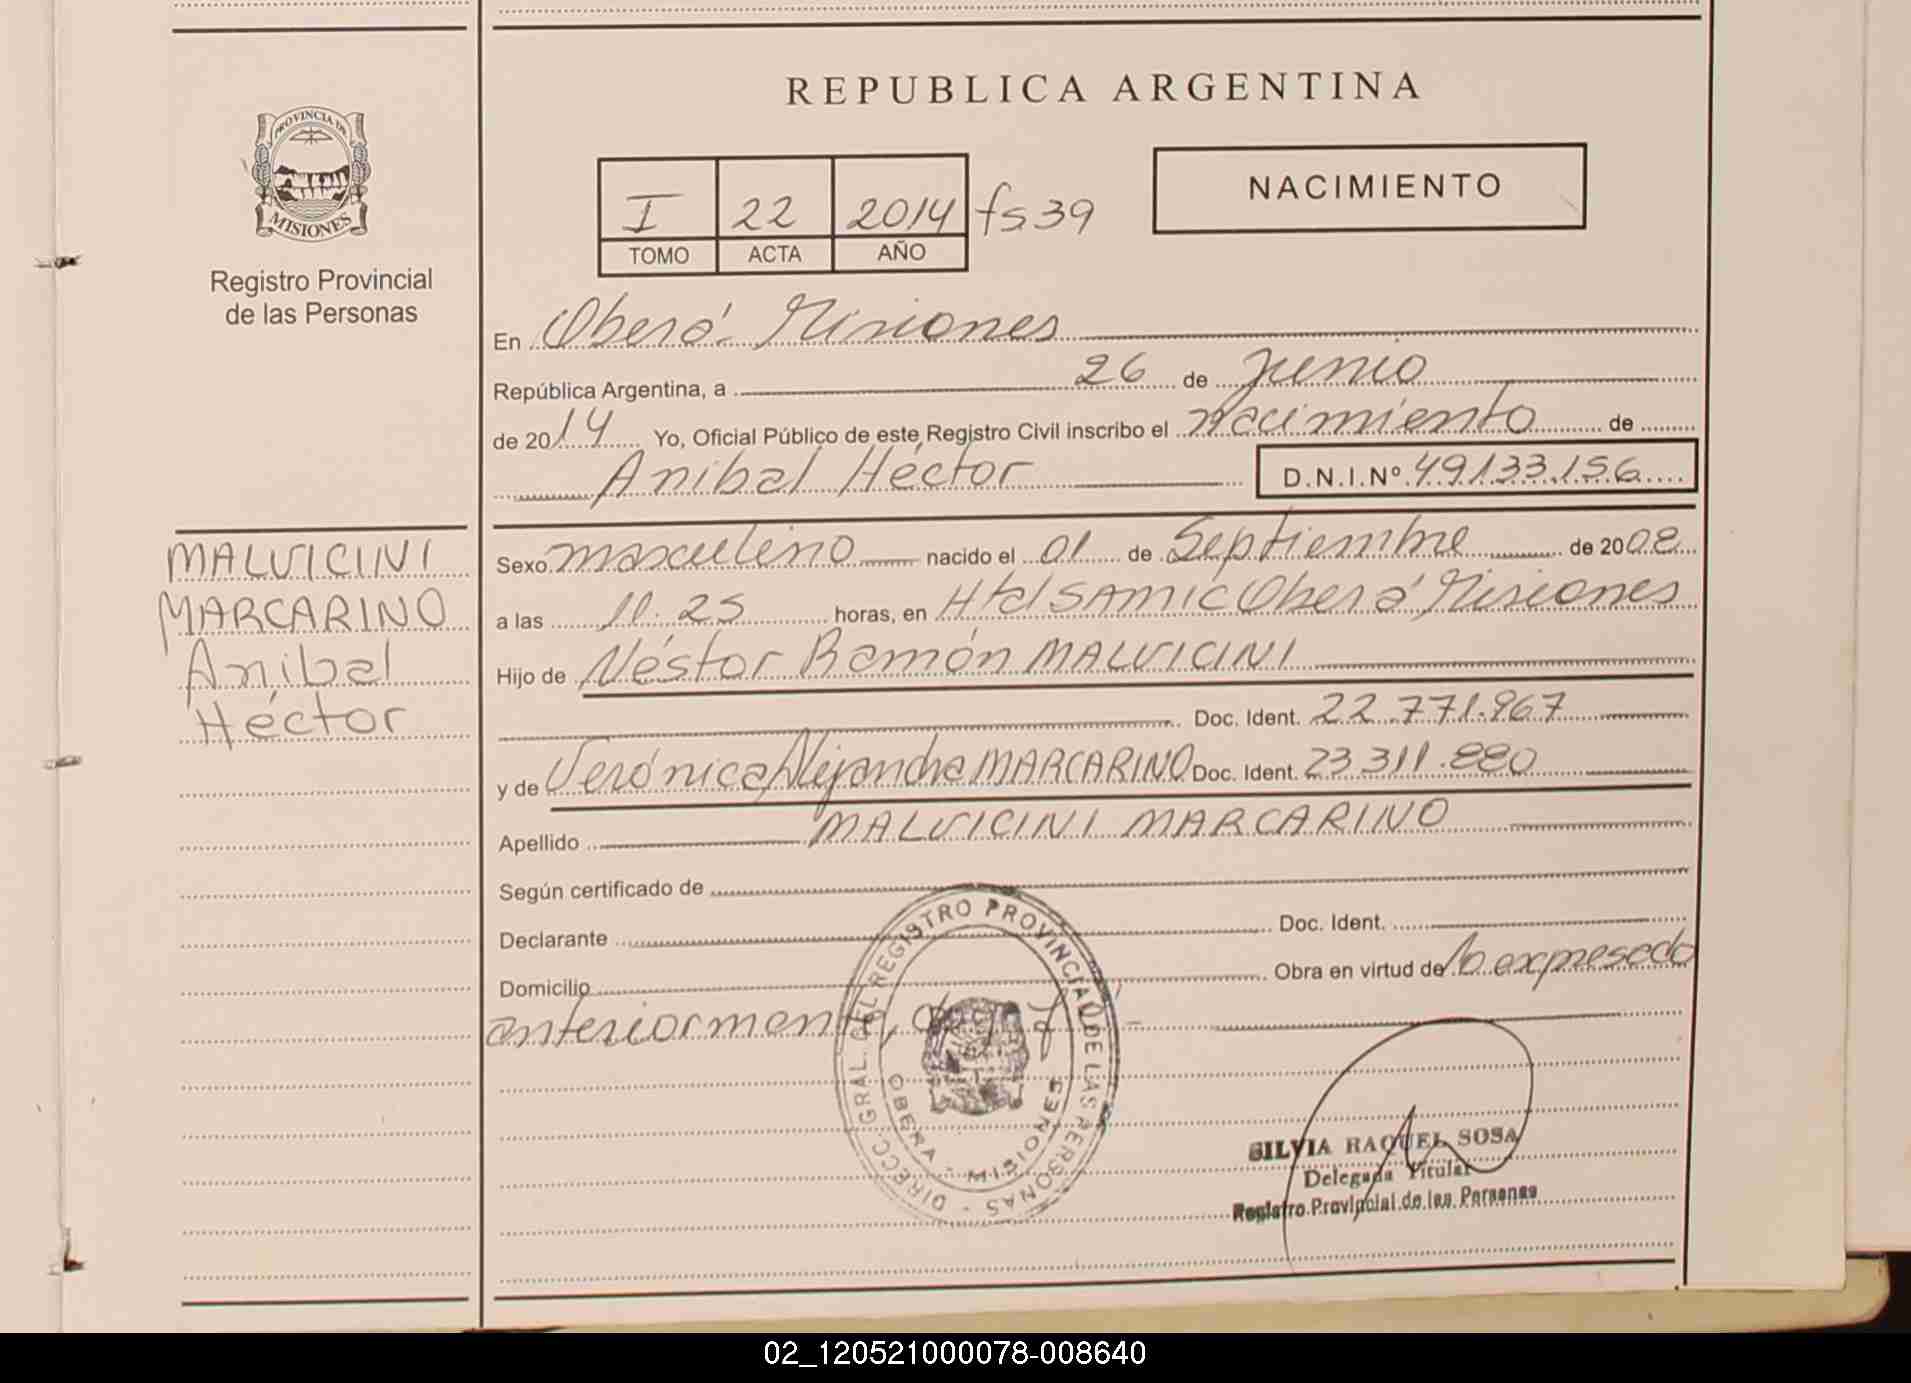 PROVINCIA DE
MISIONES
Registro Provincial
de las Personas
MALVICINI
MARCARINO
Aníbal
Héctor
REPUBLICA ARGENTINA
I 22 2014 fs 39
TOMO ACTA AÑO
NACIMIENTO
En Oberá - Misiones
República Argentina, a 26 de junio
de 2014 Yo, Oficial Público de este Registro Civil inscribo el nacimiento de
Aníbal Héctor D.N.I.Nº 49.133.156
Sexo masculino nacido el 01 de Septiembre de 2008
a las 11.25 horas, en Htal SAMIC Oberá Misiones
Hijo de Néstor Ramón MALVICINI
Doc. Ident. 22.771.967
y de Verónica Alejandra MARCARINO Doc. Ident. 23311.880
Apellido MALVICINI MARCARINO
Según certificado de
Declarante Doc. Ident.
Domicilio Obra en virtud de lo expresado
anteriormente, doy fé -
DIRECC. GRAL. DEL REGISTRO PROVINCIAL DE LAS PERSONAS -
OBERA - MISIONES
SILVIA RAQUEL SOSA
Delegada Titular
Registro Provincial de las Personas
02_120521000078-008640